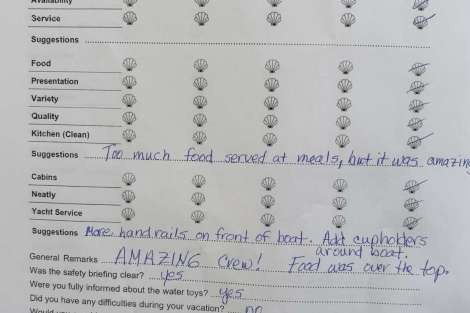 Availability
Service
Suggestions
Food
Presentation
Variety
Quality
Kitchen (Clean)
Suggestions Too much food served at meals, but it was amazing
Cabins
Neatly
Yacht Service
Suggestions More handrails on front of boat. Add cupholders
around boat.
General Remarks AMAZING Crew! Food was over the top.
Was the safety briefing clear? yes
Were you fully informed about the water toys? yes
Did you have any difficulties during your vacation? no
Would you